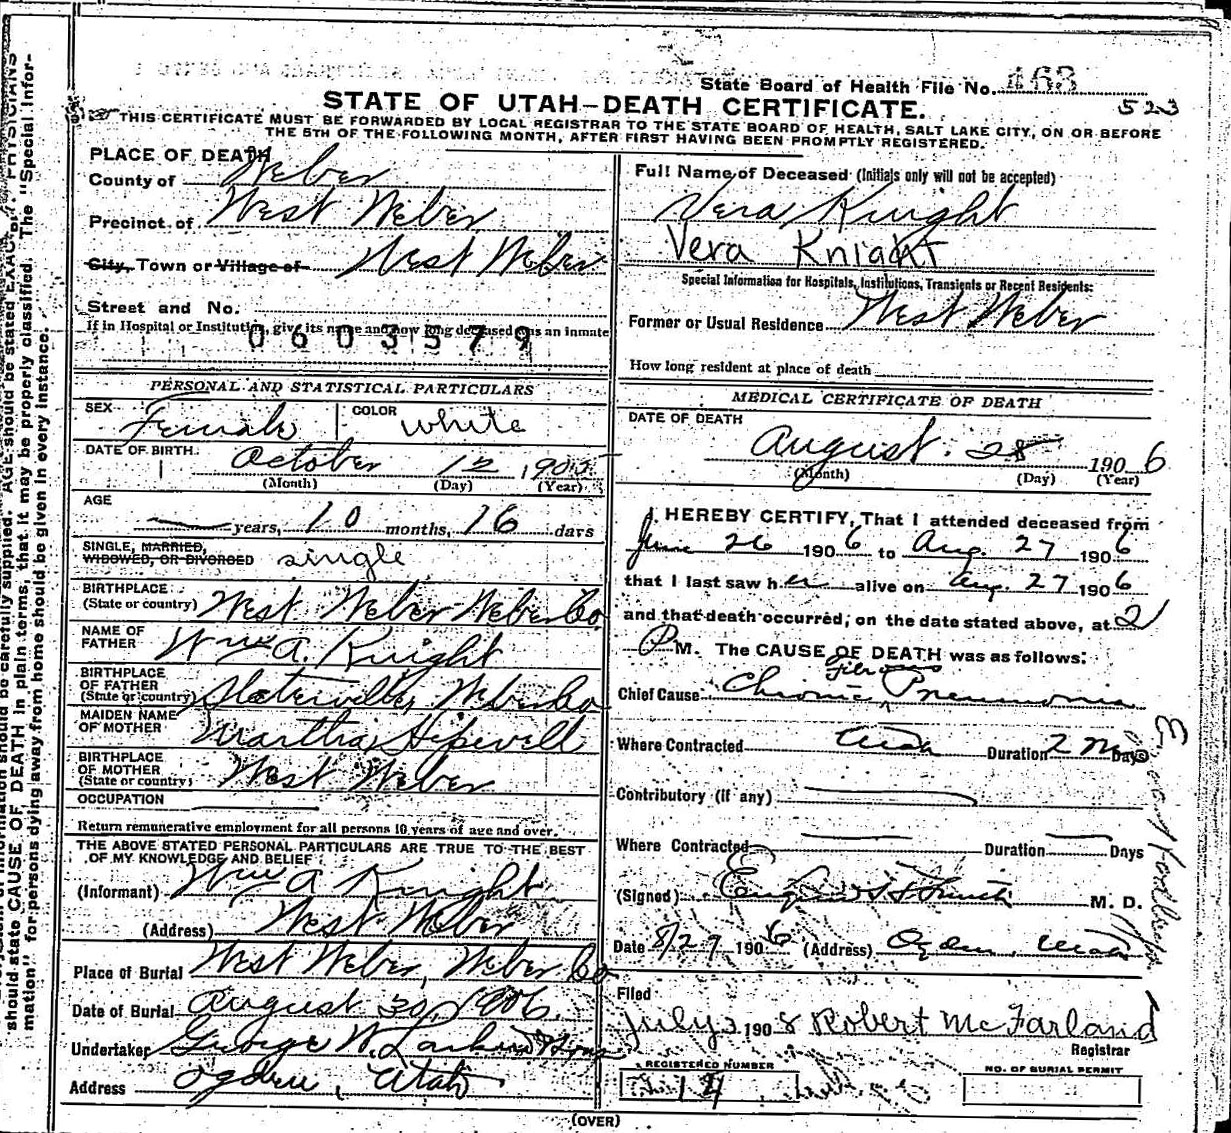 State Board of Health File No. 463
523
STATE OF UTAH—DEATH CERTIFICATE.
THIS CERTIFICATE MUST BE FORWARDED BY LOCAL REGISTRAR TO THE STATE BOARD OF HEALTH, SALT LAKE CITY, ON OR BEFORE
THE 5TH OF THE FOLLOWING MONTH, AFTER FIRST HAVING BEEN PROMPTLY REGISTERED.
PLACE OF DEATH
County of Weber
Precinct of West Weber
City, Town or Village of West Weber
Street and No.
If in Hospital or Institution, give its name and how long deceased was an inmate
0603579
PERSONAL AND STATISTICAL PARTICULARS
SEX Female COLOR white
DATE OF BIRTH October 12 1905
(Month) (Day) (Year)
AGE
years, 10 months, 16 days
SINGLE, MARRIED,
WIDOWED, OR DIVORCED single
BIRTHPLACE
(State or country) West Weber Weber Co.
NAME OF
FATHER Wm A. Knight
BIRTHPLACE
OF FATHER
(State or country) Slaterville, Weber Co
MAIDEN NAME
OF MOTHER Martha Hipwell
BIRTHPLACE
OF MOTHER
(State or country) West Weber
OCCUPATION
Return remunerative employment for all persons 10 years of age and over.
THE ABOVE STATED PERSONAL PARTICULARS ARE TRUE TO THE BEST
OF MY KNOWLEDGE AND BELIEF
(Informant) Wm A Knight
(Address) West Weber
Place of Burial West Weber, Weber Co
Date of Burial August 30, 1906.
Undertaker George W. Larkin & Sons
Address Ogden, Utah
Full Name of Deceased (Initials only will not be accepted)
Vera Knight
Vera Knight
Special Information for Hospitals, Institutions, Transients or Recent Residents:
Former or Usual Residence West Weber
How long resident at place of death
MEDICAL CERTIFICATE OF DEATH
DATE OF DEATH
August 28 1906
(Month) (Day) (Year)
I HEREBY CERTIFY, That I attended deceased from
June 26 1906 to Aug. 27 1906
that I last saw her alive on Aug. 27 1906
and that death occurred, on the date stated above, at 2
P M. The CAUSE OF DEATH was as follows:
Chief Cause Chronic Fibrous Pneumonia
Where Contracted Utah Duration 2 Mo Days
Contributory (if any)
Where Contracted Duration Days
(Signed) M. D.
Date 8/29 1906 (Address) Ogden, Utah
Filed
July 2 1908 Robert McFarland
Registrar
REGISTERED NUMBER
14
NO. OF BURIAL PERMIT
(OVER)
should state CAUSE OF DEATH in plain terms, that it may be properly classified. The "Special Infor-
mation" for persons dying away from home should be given in every instance.